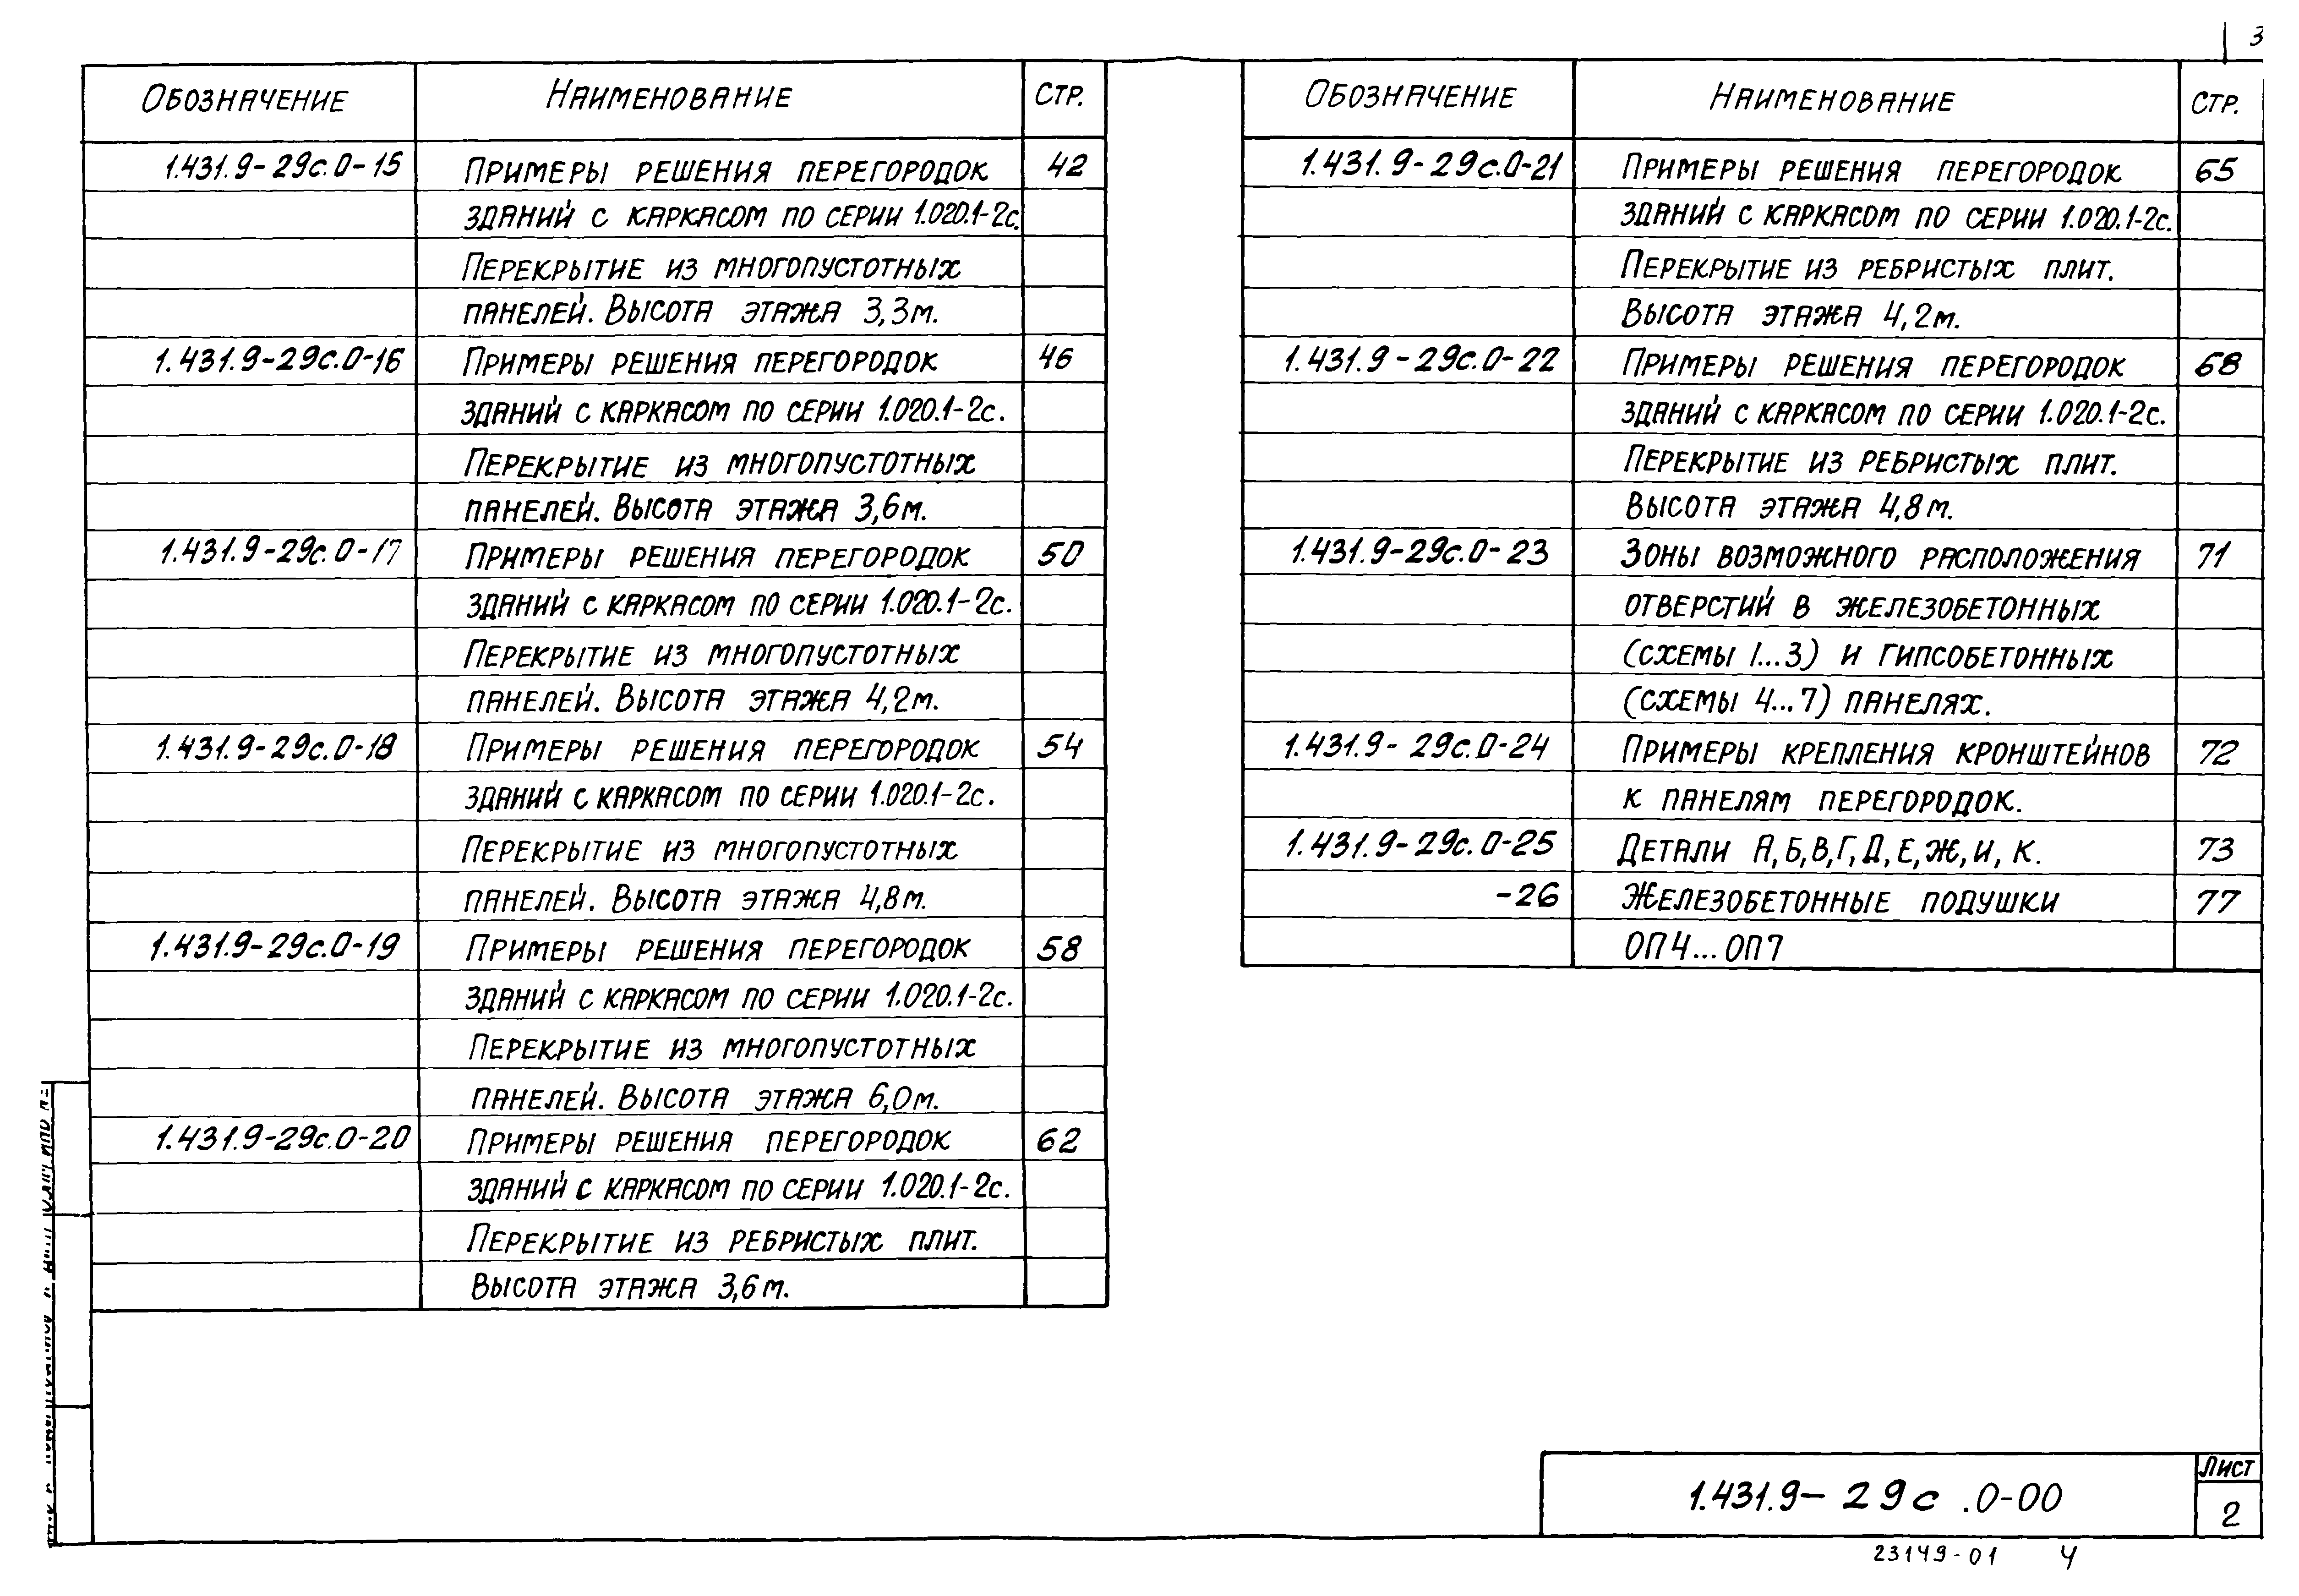 3
Обозначение Наименование Стр.
1.431.9-29с.0-15 Примеры решения перегородок 42
зданий с каркасом по серии 1.020.1-2с.
Перекрытие из многопустотных
панелей. Высота этажа 3,3м.
1.431.9-29с.0-16 Примеры решения перегородок 46
зданий с каркасом по серии 1.020.1-2с.
Перекрытие из многопустотных
панелей. Высота этажа 3,6м.
1.431.9-29с.0-17 Примеры решения перегородок 50
зданий с каркасом по серии 1.020.1-2с.
Перекрытие из многопустотных
панелей. Высота этажа 4,2м.
1.431.9-29с.0-18 Примеры решения перегородок 54
зданий с каркасом по серии 1.020.1-2с.
Перекрытие из многопустотных
панелей. Высота этажа 4,8м.
1.431.9-29с.0-19 Примеры решения перегородок 58
зданий с каркасом по серии 1.020.1-2с.
Перекрытие из многопустотных
панелей. Высота этажа 6,0м.
1.431.9-29с.0-20 Примеры решения перегородок 62
зданий с каркасом по серии 1.020.1-2с.
Перекрытие из ребристых плит.
Высота этажа 3,6м.
Обозначение Наименование Стр.
1.431.9-29с.0-21 Примеры решения перегородок 65
зданий с каркасом по серии 1.020.1-2с.
Перекрытие из ребристых плит.
Высота этажа 4,2м.
1.431.9-29с.0-22 Примеры решения перегородок 68
зданий с каркасом по серии 1.020.1-2с.
Перекрытие из ребристых плит.
Высота этажа 4,8м.
1.431.9-29с.0-23 Зоны возможного расположения 71
отверстий в железобетонных
(схемы 1...3) и гипсобетонных
(схемы 4...7) панелях.
1.431.9-29с.0-24 Примеры крепления кронштейнов 72
к панелям перегородок.
1.431.9-29с.0-25 Детали А,Б,В,Г,Д,Е,Ж,И,К. 73
-26 Железобетонные подушки 77
ОП4...ОП7
1.431.9-29с.0-00
Лист
2
23149-01 4